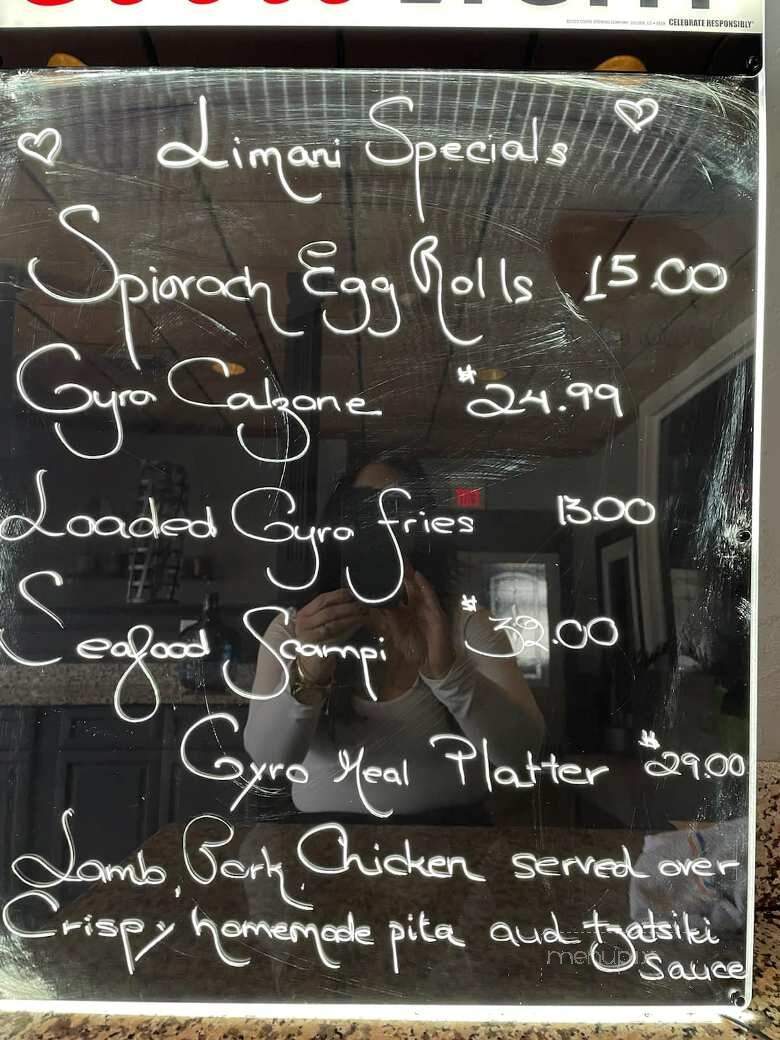 CELEBRATE RESPONSIBLY
Limani Specials
Spinach Egg Rolls 15.00
Gyro Calzone $24.99
Loaded Gyro fries 13.00
Seafood Scampi $32.00
Gyro Meal Platter $29.00
Lamb, Pork, Chicken served over
Crispy homemade pita and tzatsiki
sauce
menupix